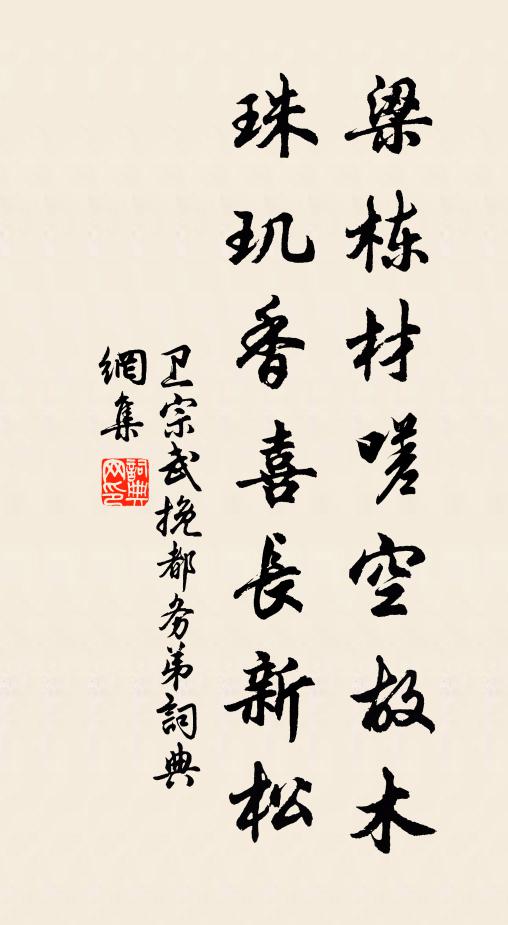 梁栋材嗟空故木
珠玑香喜長新松
卫宗武挽都务弟詞典
網集
詞典
网印